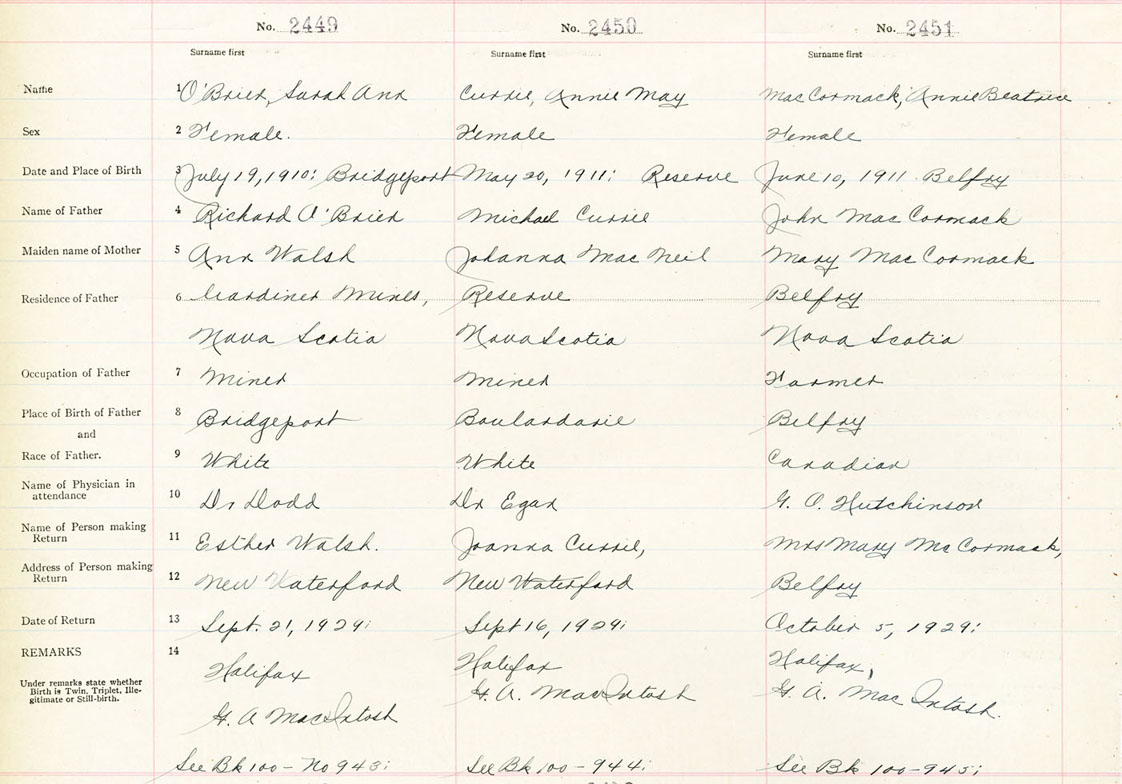 No. 2449 No. 2450 No. 2451
Surname first Surname first Surname first
Name 1 O'Brien, Sarah Ann Currie, Annie May MacCormack, Annie Beatrice
Sex 2 Female. Female Female
Date and Place of Birth 3 July 19, 1910: Bridgeport May 20, 1911: Reserve June 10, 1911 Belfry
Name of Father 4 Richard O'Brien Michael Currie John MacCormack
Maiden name of Mother 5 Ann Walsh Johanna MacNeil Mary MacCormack
Residence of Father 6 Gardiner Mines, Reserve Belfry
Nova Scotia Nova Scotia Nova Scotia
Occupation of Father 7 Miner Miner Farmer
Place of Birth of Father 8 Bridgeport Boulardarie Belfry
and
Race of Father. 9 White White Canadian
Name of Physician in
attendance 10 Dr Dodd Dr Egan G. O. Hutchinson
Name of Person making
Return 11 Esther Walsh. Joanna Currie, Mrs Mary McCormack,
Address of Person making
Return 12 New Waterford New Waterford Belfry
Date of Return 13 Sept. 21, 1929: Sept 16, 1929: October 5, 1929:
REMARKS 14 Halifax Halifax Halifax,
Under remarks state whether
Birth is Twin, Triplet, Ille-
gitimate or Still-birth.
H. A MacIntosh H. A. MacIntosh H. A. MacIntosh.
See Bk 100 - No 943: See Bk 100 - 944: See Bk 100 - 945: